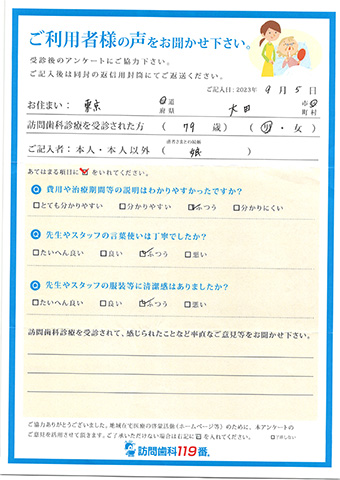 ご利用者様の声をお聞かせ下さい。
受診後のアンケートにご協力下さい。
ご記入後は同封の返信用封筒にてご返送ください。
ご記入日：2023年 9月 5日
お住まい： 東京 都道府県 大田 市区町村
訪問歯科診療を受診された方（ 79 歳）（男・女）
ご記入者：本人・本人以外（患者さまとの続柄 娘 ）
あてはまる項目に☑をいれてください。
Q 費用や治療期間等の説明はわかりやすかったですか？
□とても分かりやすい □分かりやすい ☑ふつう □分かりにくい
Q 先生やスタッフの言葉使いは丁寧でしたか？
□たいへん良い □良い ☑ふつう □悪い
Q 先生やスタッフの服装等に清潔感はありましたか？
□たいへん良い □良い ☑ふつう □悪い
訪問歯科診療を受診されて、感じられたことなど率直なご意見等をお聞かせ下さい。
ご協力ありがとうございました。地域在宅医療の啓蒙活動（ホームページ等）のために、本アンケートの
ご意見を活用させて頂きます。ご了承いただけない場合は右記に☑を入れてください。 □了承しない
訪問歯科119番。